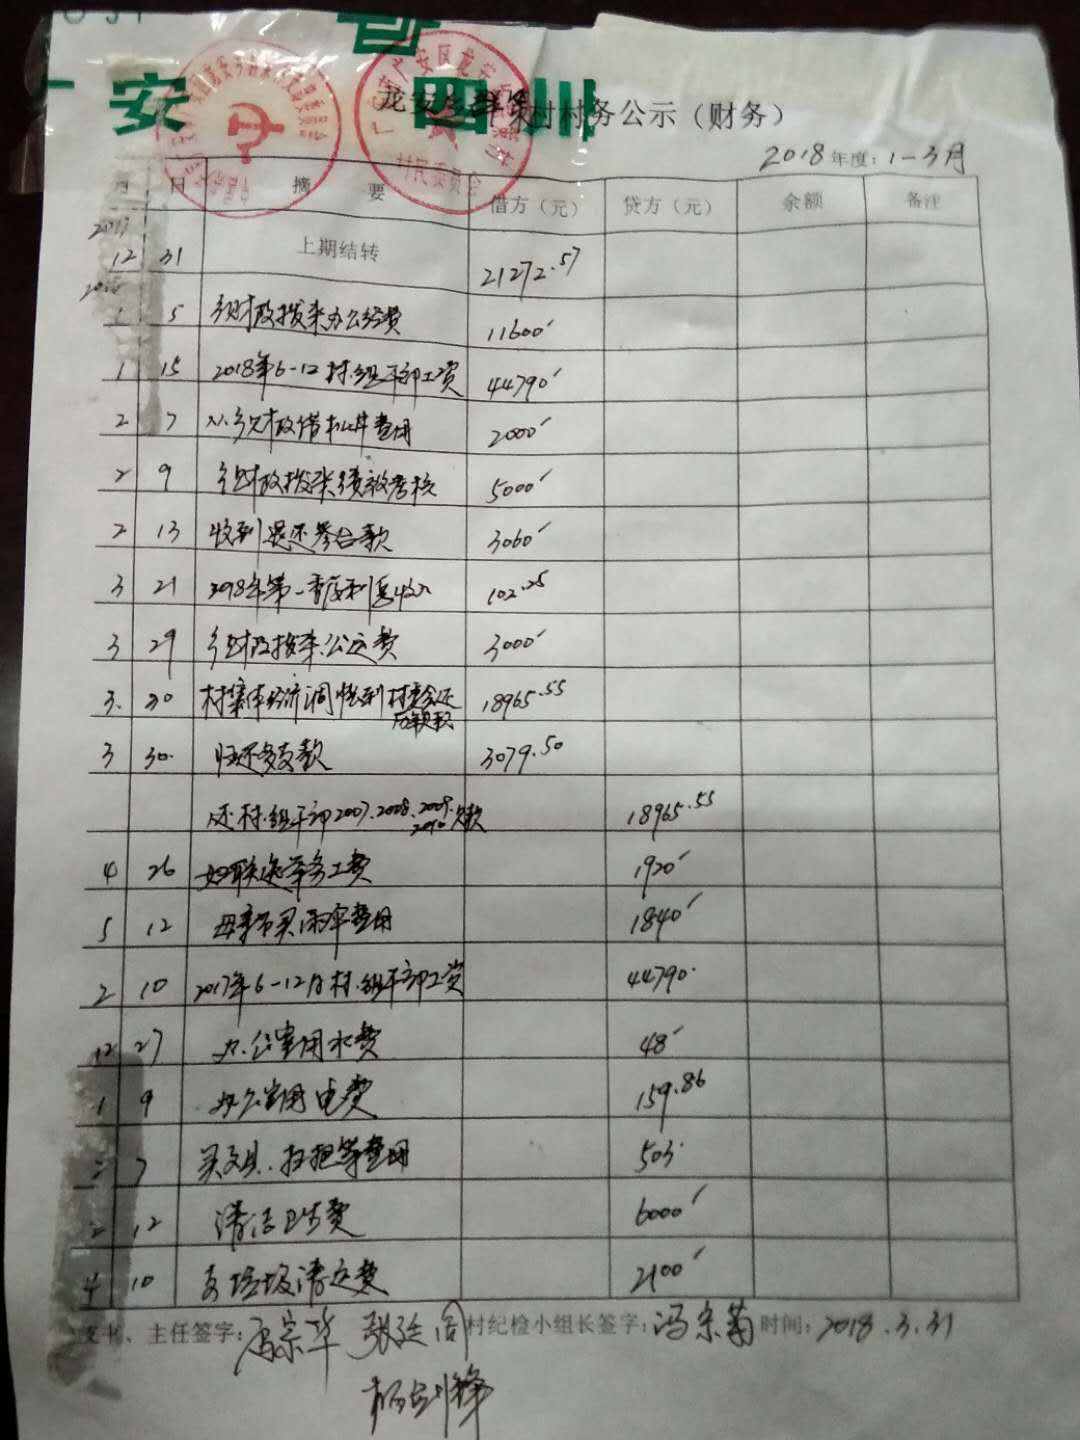 安 四川
龙安 村村务公示（财务）
村民委员会
2018年度：1-3月
月 日 摘要 借方（元） 贷方（元） 余额 备注
2017
12 31 上期结转 21272.57
1 5 乡财政拨来办公经费 11600
1 15 2018年6-12村.组干部工资 44790
2 7 从乡财政借 费用 2000
2 9 乡财政拨来绩效考核 5000
2 13 收到退还参合款 3060
3 21 2018年第一季度利息收入 102.25
3 29 乡财政拨来公运费 3000
3. 30 村集体经济调账到村委会还 18965.55
3 30. 归还多支款 3079.50
还村.组干部2007.2008.2009. 18965.55
2010欠款
4 26 妇联选举务工费 1920
5 12 母亲节买雨伞费用 1840
2 10 2017年6-12月村.组干部工资 44790.
12 27 办公室用水费 48
1 9 办公室用电费 159.86
2 7 买文具.扫把等费用 503.
2 12 清洁卫生费 6000
4 10 支垃圾清运费 2100
支书、主任签字： 宗华 张廷 村纪检小组长签字：冯宗菊 时间：2018.3.31
杨 锋